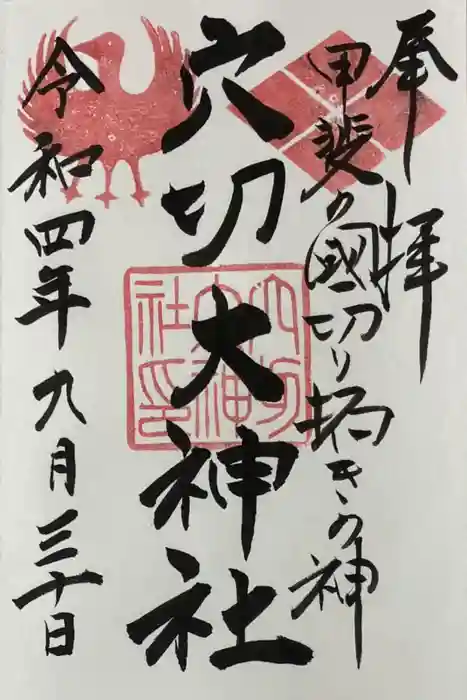 奉拝
甲斐の國切り拓きの神
穴切大神社
令和四年九月三十日
穴切大神社印